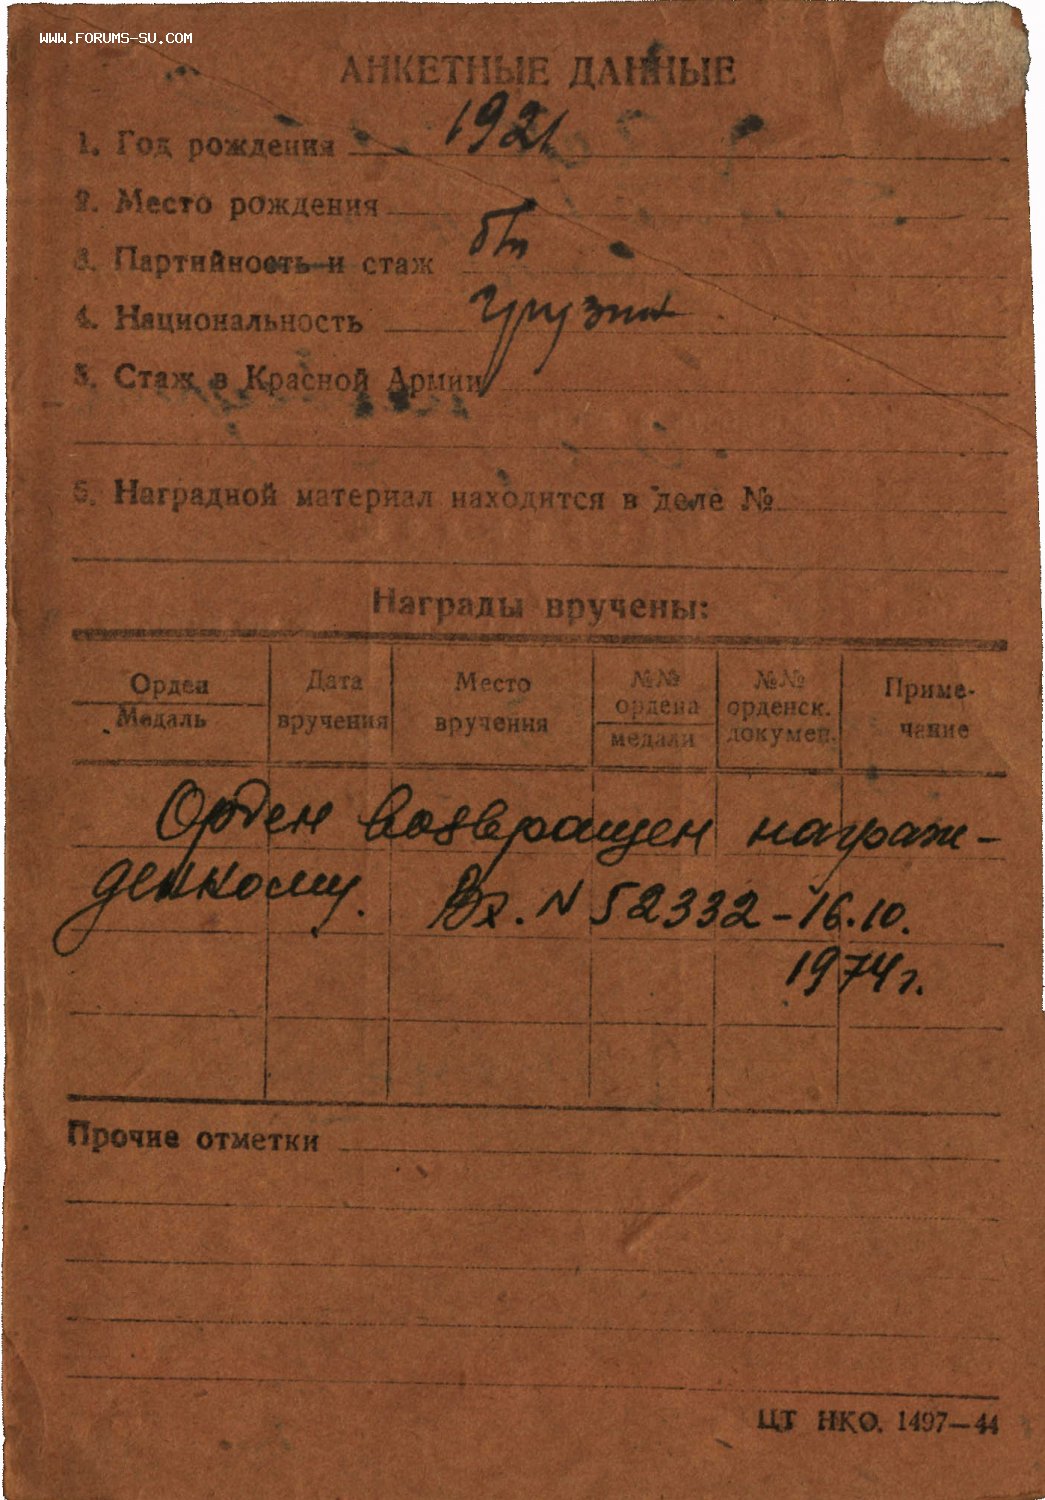 WWW.FORUMS-SU.COM
АНКЕТНЫЕ ДАННЫЕ
1. Год рождения 1921
2. Место рождения
3. Партийность и стаж б/п
4. Национальность грузин
5. Стаж в Красной Армии
6. Наградной материал находится в деле №
Награды вручены:
Орден Медаль
Дата вручения
Место вручения
№№ ордена медали
№№ орденск. докумен.
Примечание
Орден возвращен награж-
денному. Вх. N 52332-16.10.
1974г.
Прочие отметки
ЦТ НКО. 1497—44